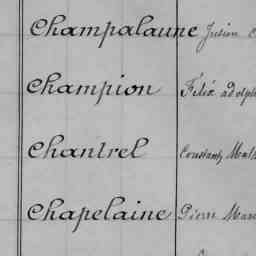 Champalaune Julien
Champion Félix adolph
Chantrel Constant Math
Chapelaine Pierre Mar